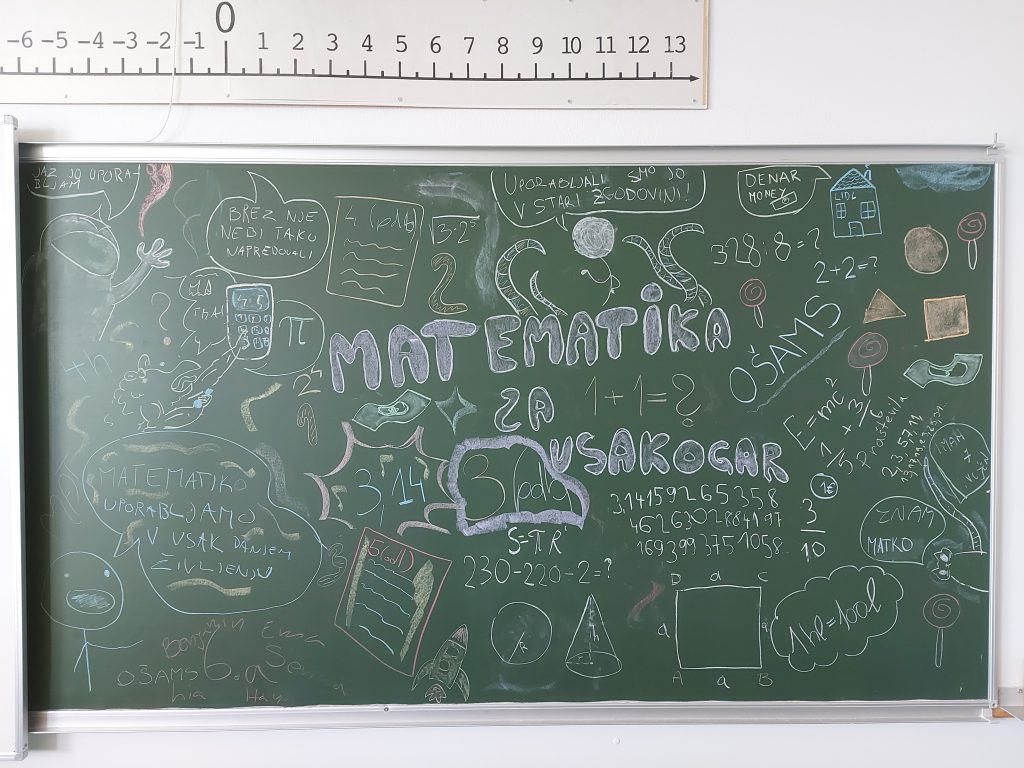 -6 -5 -4 -3 -2 -1 0 1 2 3 4 5 6 7 8 9 10 11 12 13
JAZ JO UPORA-
BLJAM
BREZ NJE
NEBI TAKO
NAPREDOVALI
4 (pdb)
√3·2⁵
2
UPORABLJALI SMO JO
V STARI ZGODOVINI!
DENAR
MONEY
LIDL
328:8=?
2+2=?
MA
THA!
π
MATEMATIKA
ZA
VSAKOGAR
1+1=?
OŠAMS
E=mc²
praštevila
2,3,5,7,11
+n
MATEMATIKO
UPORABLJAMO
V VSAK DANJEM
ŽIVLJENJU
3,14
3 (pdb)
3,14159265358
4626302884197
1692993751058
1€
3
10
ZNAM
MATKO
S=πR
230-220-2=?
5 (odl)
D a C
a a
A a B
1hl=100l
Benjamin Ema
OŠAMS 6.a
Lia